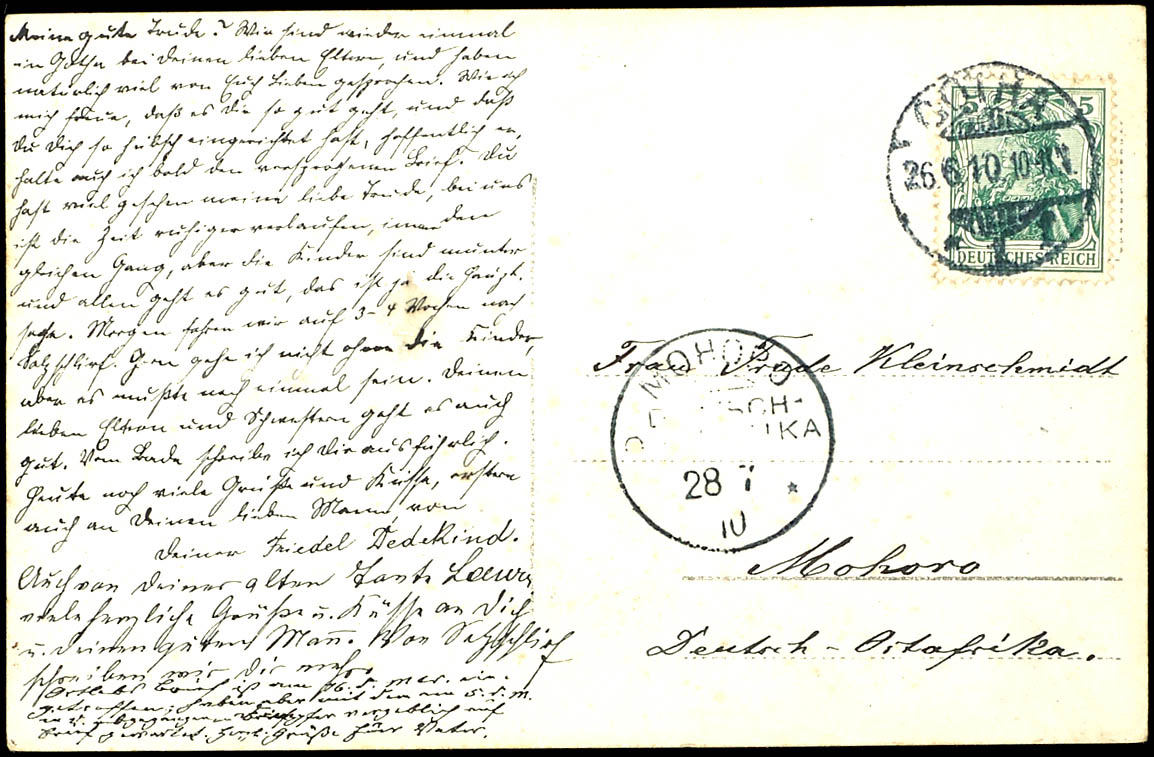 Meine gute Trude! Wir sind wieder einmal
in Gotha bei Deinen lieben Eltern, und haben
natürlich viel von Euch Lieben gesprochen. Wie ich
mich freue, daß es Dir so gut geht, und daß
Du Dich so hübsch eingerichtet hast, hoffentlich er,
halte auch ich bald den versprochenen Brief. Du
hast viel gesehen meine liebe Trude, bei uns
ist die Zeit ruhiger verlaufen, immer den
gleichen Gang, aber die Kinder sind munter
und allen geht es gut, das ist ja die Haupt-
sache. Morgen fahren wir auf 3-4 Wochen nach
Salzschlirf. Gern gehe ich nicht ohne die Kinder,
aber es mußte noch einmal sein. Deinen
lieben Eltern und Schwestern geht es auch
gut. Vom Bade schreibe ich Dir ausführlich.
Heute noch viele Grüße und Küsse, erstere
auch an Deinen lieben Mann von
Deiner Friedel Dedekind.
Auch von Deiner alten Tante
viele herzliche Grüße u. Küsse an Dich
u. Deinen guten Mann. Von Salzschlirf
schreiben wir Dir mehr.
ist am 16. d. ein-
getroffen; haben aber mit dem am 5. d. M.
abgegangenen vergeblich auf
Brief gewartet. Herzl. Grüße Euer Vater.
GOTHA
26.6.10.10-11V.
5
DEUTSCHES REICH
MOHORO
28 7
10
Frau Trude Kleinschmidt
Mohoro
Deutsch-Ostafrika.